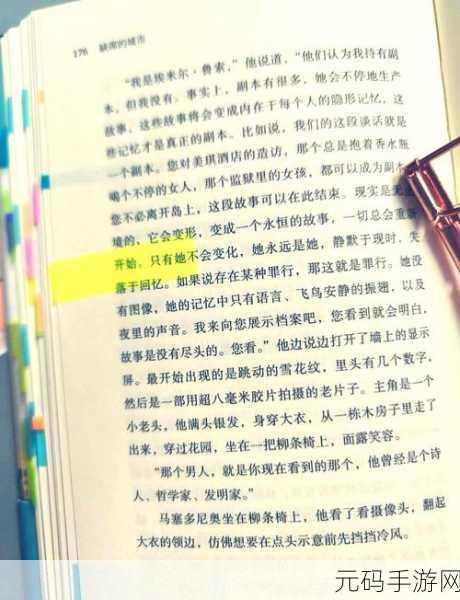 176 缺席的城市
“我是埃米尔·鲁索,”他说道,“他们认为我持有副
本,但我没有。事实上,副本有很多,她会不停地生产
故事,这些故事将会变成内在于每个人的隐形记忆,这
些记忆才是真正的副本。比如说,我们的这段谈话就是
一个副本。您对美琪酒店的造访,那个总是抱着香水瓶
喝个不停的女人,那个监狱里的女孩,都可以成为副本
您不必离开岛上,这段故事可以在此结束。现实是无
境的,它会变形,变成一个永恒的故事,一切总会重新
开始。只有她不会变化,她永远是她,静默于现时,失
落于回忆。如果说存在某种罪行,那这就是罪行。她没
有图像,她的记忆中只有语言、飞鸟安静的振翅,以及
夜里的声音。我来向您展示档案吧,您看到就会明白,
故事是没有尽头的。您看。”他边说边打开了墙上的显示
屏。最开始出现的是跳动的雪花纹,里头有几个数字,
然后是一部用超八毫米胶片拍摄的老片子。主角是一个
小老头,他满头银发,身穿大衣,从一栋木房子里走了
出来,穿过花园,坐在一把柳条椅上,面露笑容。
“那个男人,就是你现在看到的那个,他曾经是个诗
人、哲学家、发明家。”
马塞多尼奥坐在柳条椅上,他看了看摄像头,翻起
大衣的领边,仿佛想要在点头示意前先挡挡冷风。
元码手游网